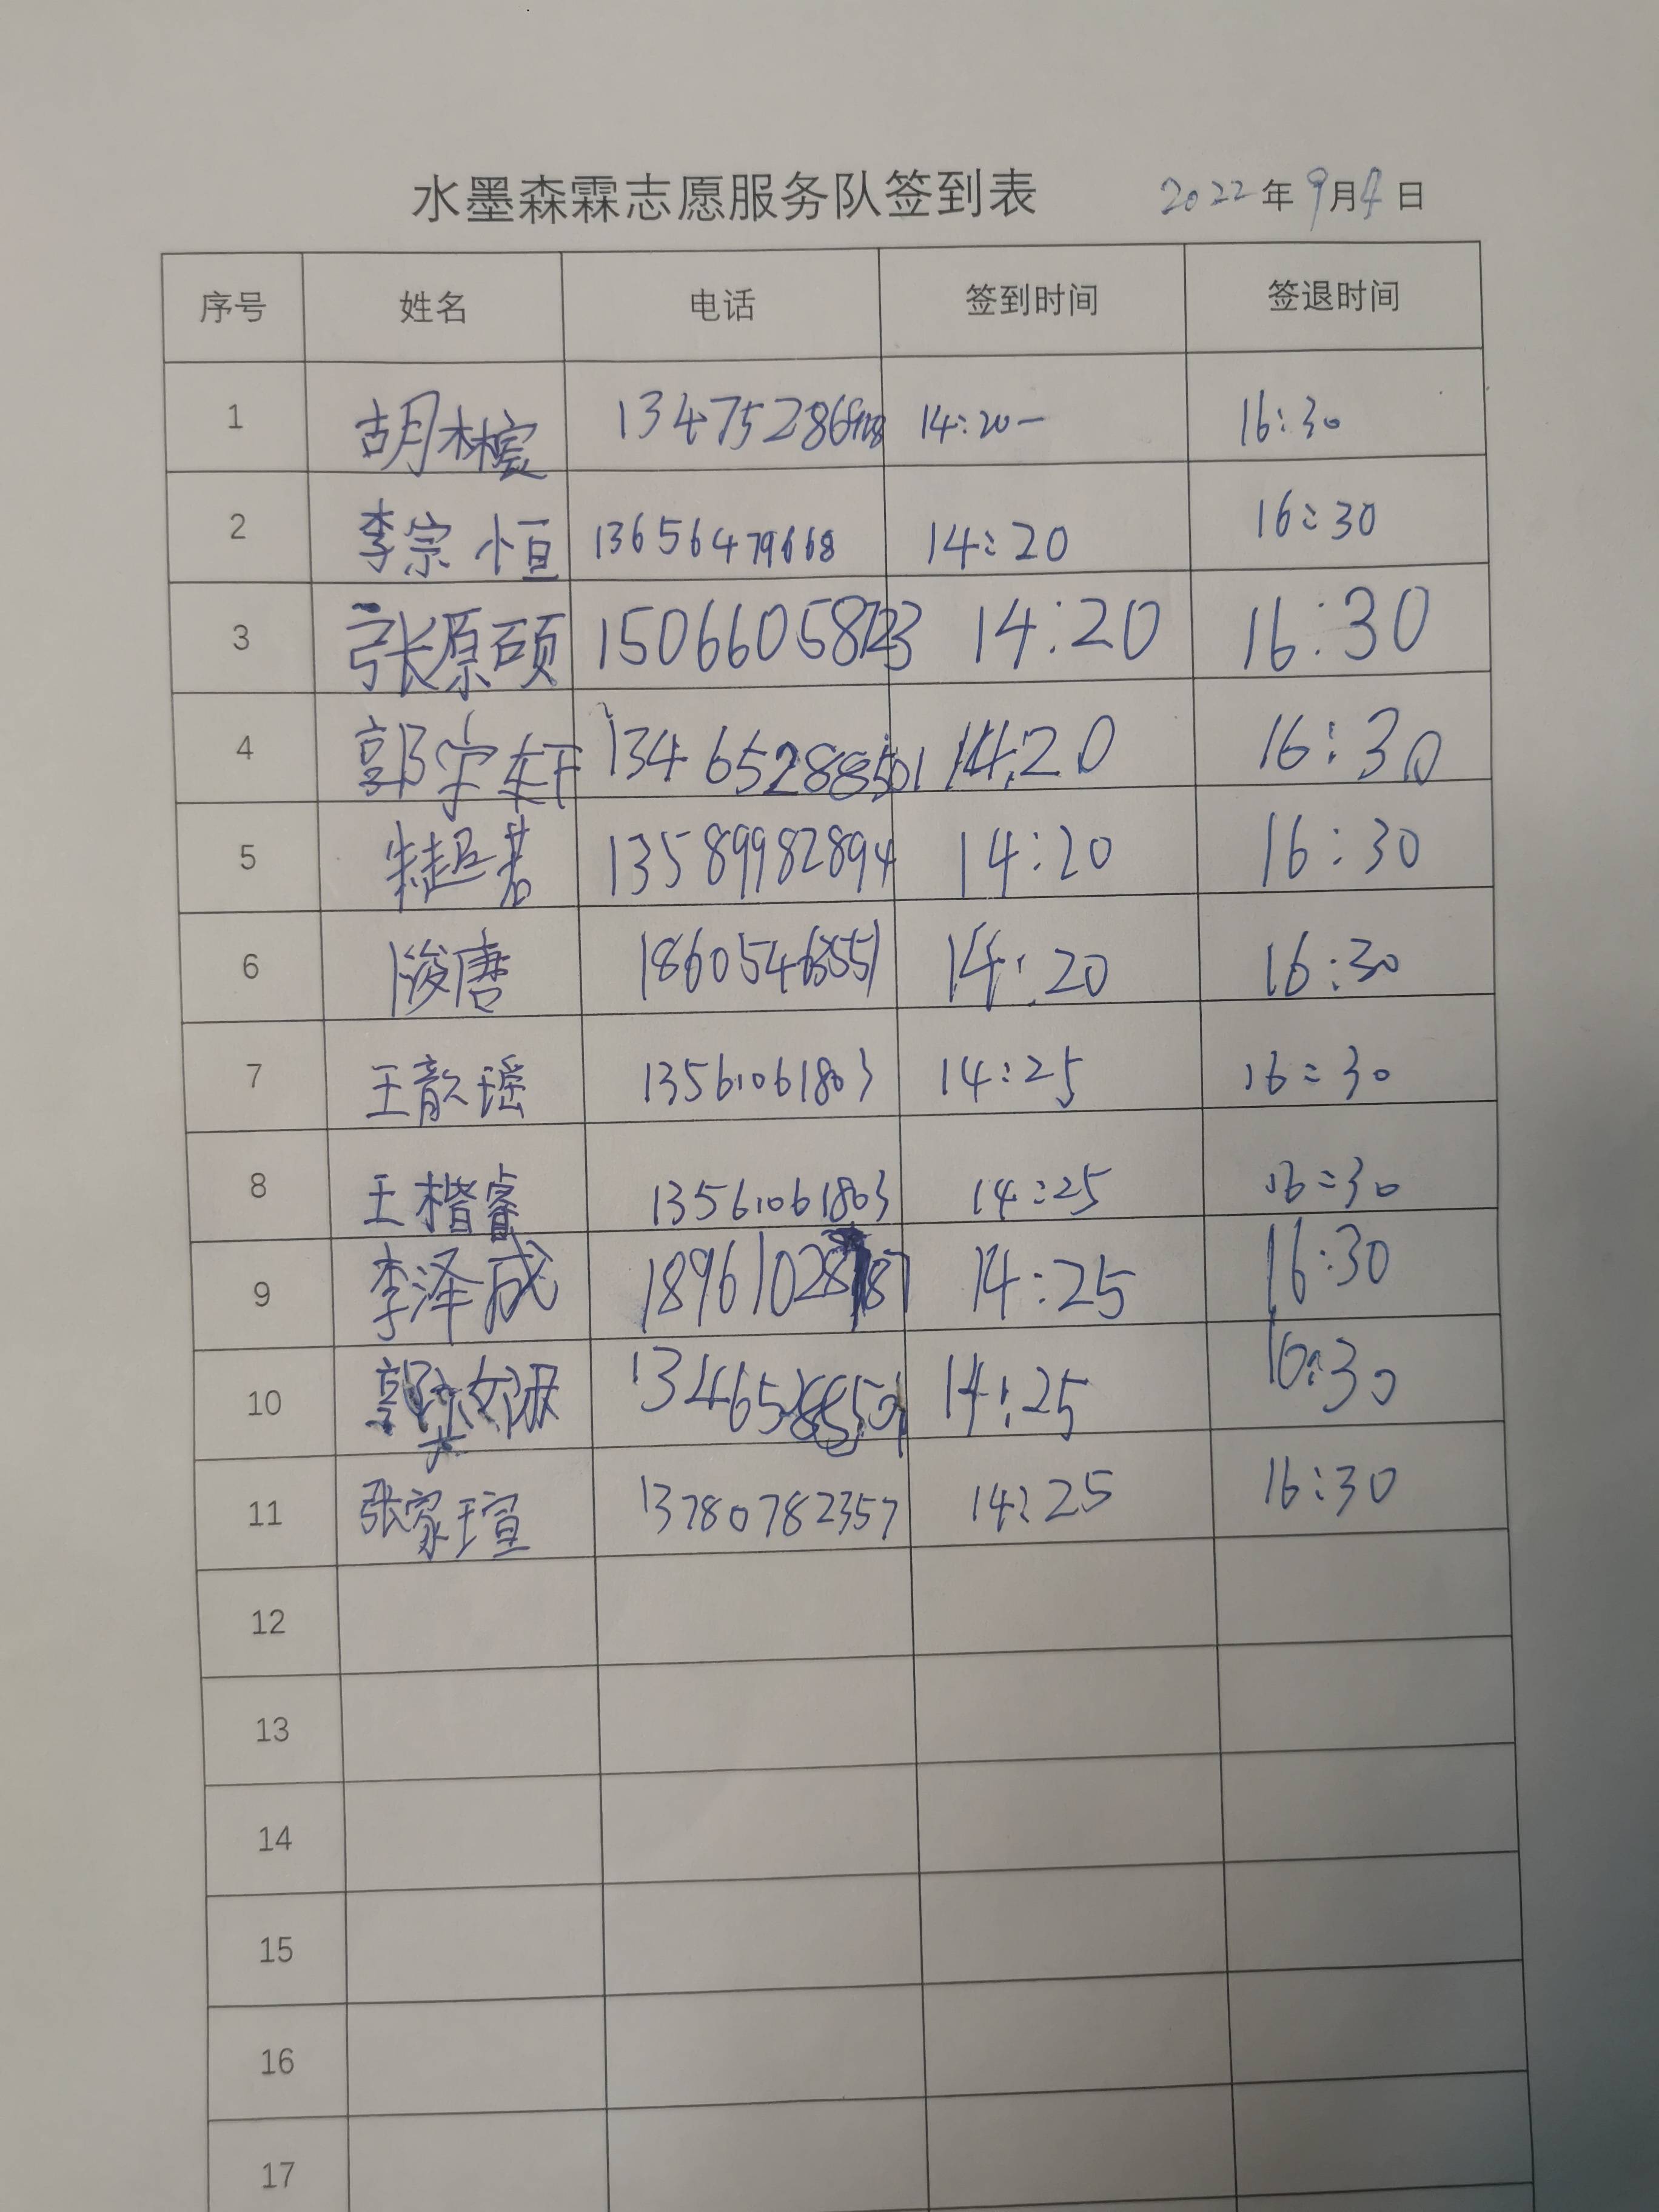 水墨森霖志愿服务队签到表 2022年9月4日
序号 姓名 电话 签到时间 签退时间
1 胡林宸 14:20 16:30
2 李宗恒 13656479668 14:20 16:30
3 张原硕 15066058723 14:20 16:30
4 郭宇轩 13465288501 14:20 16:30
5 朱超君 13589982894 14:20 16:30
6 14:20 16:30
7 王歆瑶 13561061803 14:25 16:30
8 王楷睿 13561061803 14:25 16:30
9 李泽成 14:25 16:30
10 14:25 16:30
11 张家瑄 13780782357 14:25 16:30
12
13
14
15
16
17